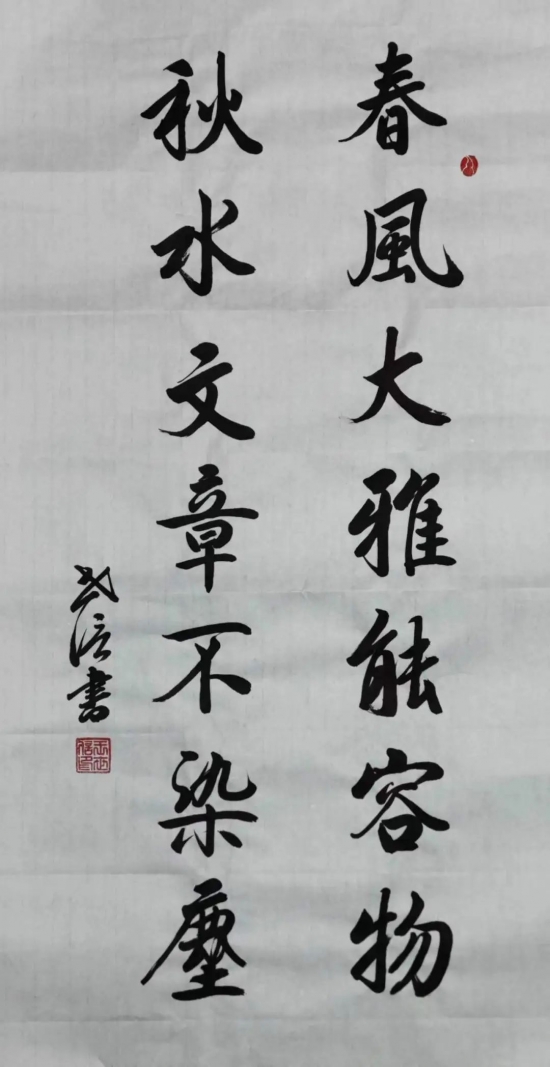 春風大雅能容物
秋水文章不染塵
書